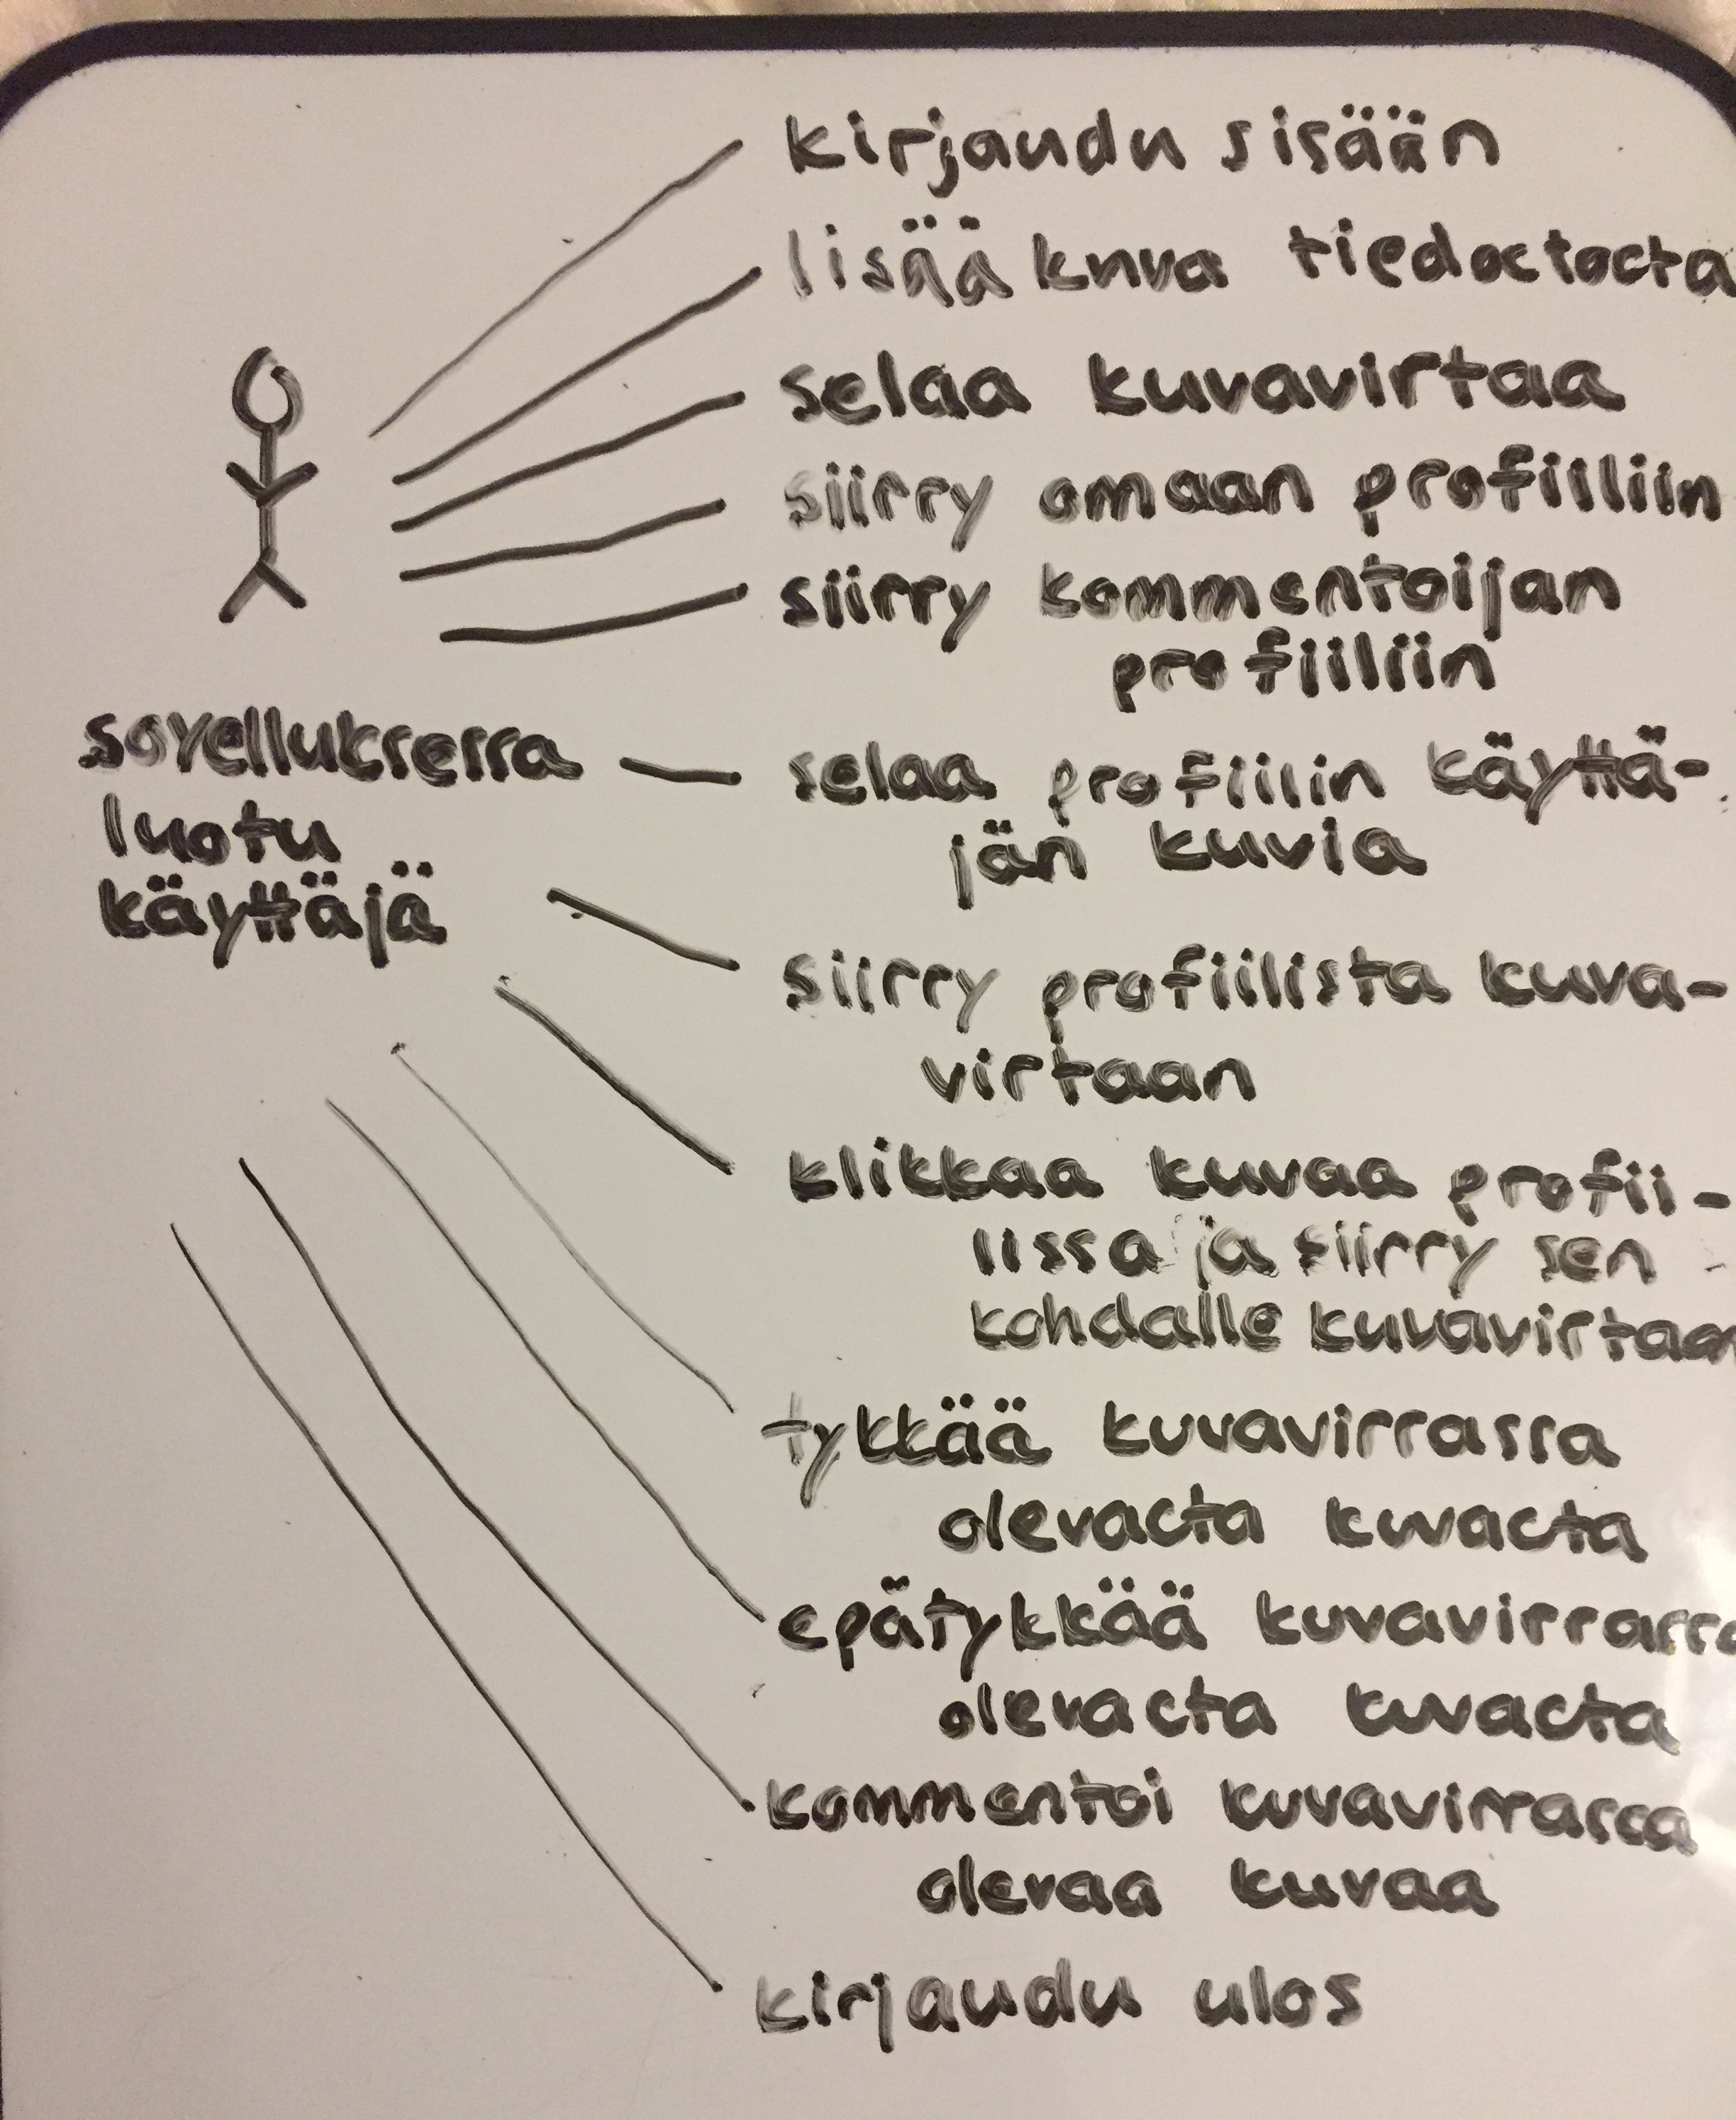 kirjaudu sisään
lisää kuva tiedostosta
selaa kuvavirtaa
siirry omaan profiiliin
siirry kommentoijan
profiiliin
sovelluksessa
luotu
käyttäjä
selaa profiilin käyttä-
jän kuvia
siirry profiilista kuva-
virtaan
klikkaa kuvaa profii-
lissa ja siirry sen
kohdalle kuvavirtaan
tykkää kuvavirrassa
olevasta kuvasta
epätykkää kuvavirrassa
olevasta kuvasta
kommentoi kuvavirrassa
olevaa kuvaa
kirjaudu ulos